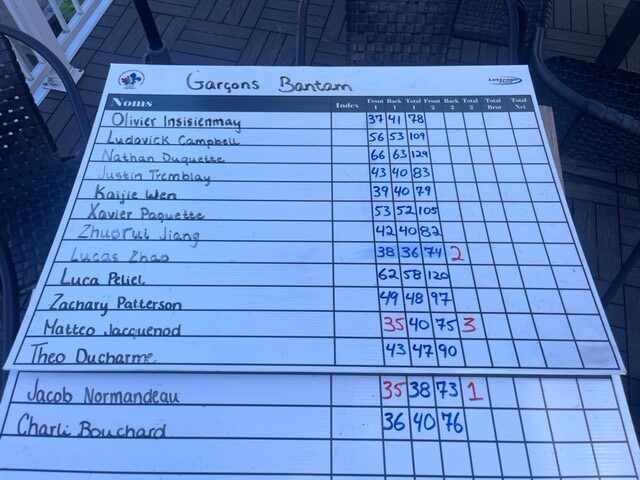 Garçons Bantam
Noms Index Front 1 Back 1 Total 1 Front 2 Back 2 Total 2 Total Brut Total Net
Olivier Insisienmay 37 41 78
Ludovick Campbell 56 53 109
Nathan Duquette 66 63 129
Justin Tremblay 43 40 83
Kaijie Wen 39 40 79
Xavier Paquette 53 52 105
Zhuorui Jiang 42 40 82
Lucas Zhao 38 36 74 2
Luca Peliel 62 58 120
Zachary Patterson 49 48 97
Matteo Jacquenod 35 40 75 3
Theo Ducharme 43 47 90
Jacob Normandeau 35 38 73 1
Charli Bouchard 36 40 76